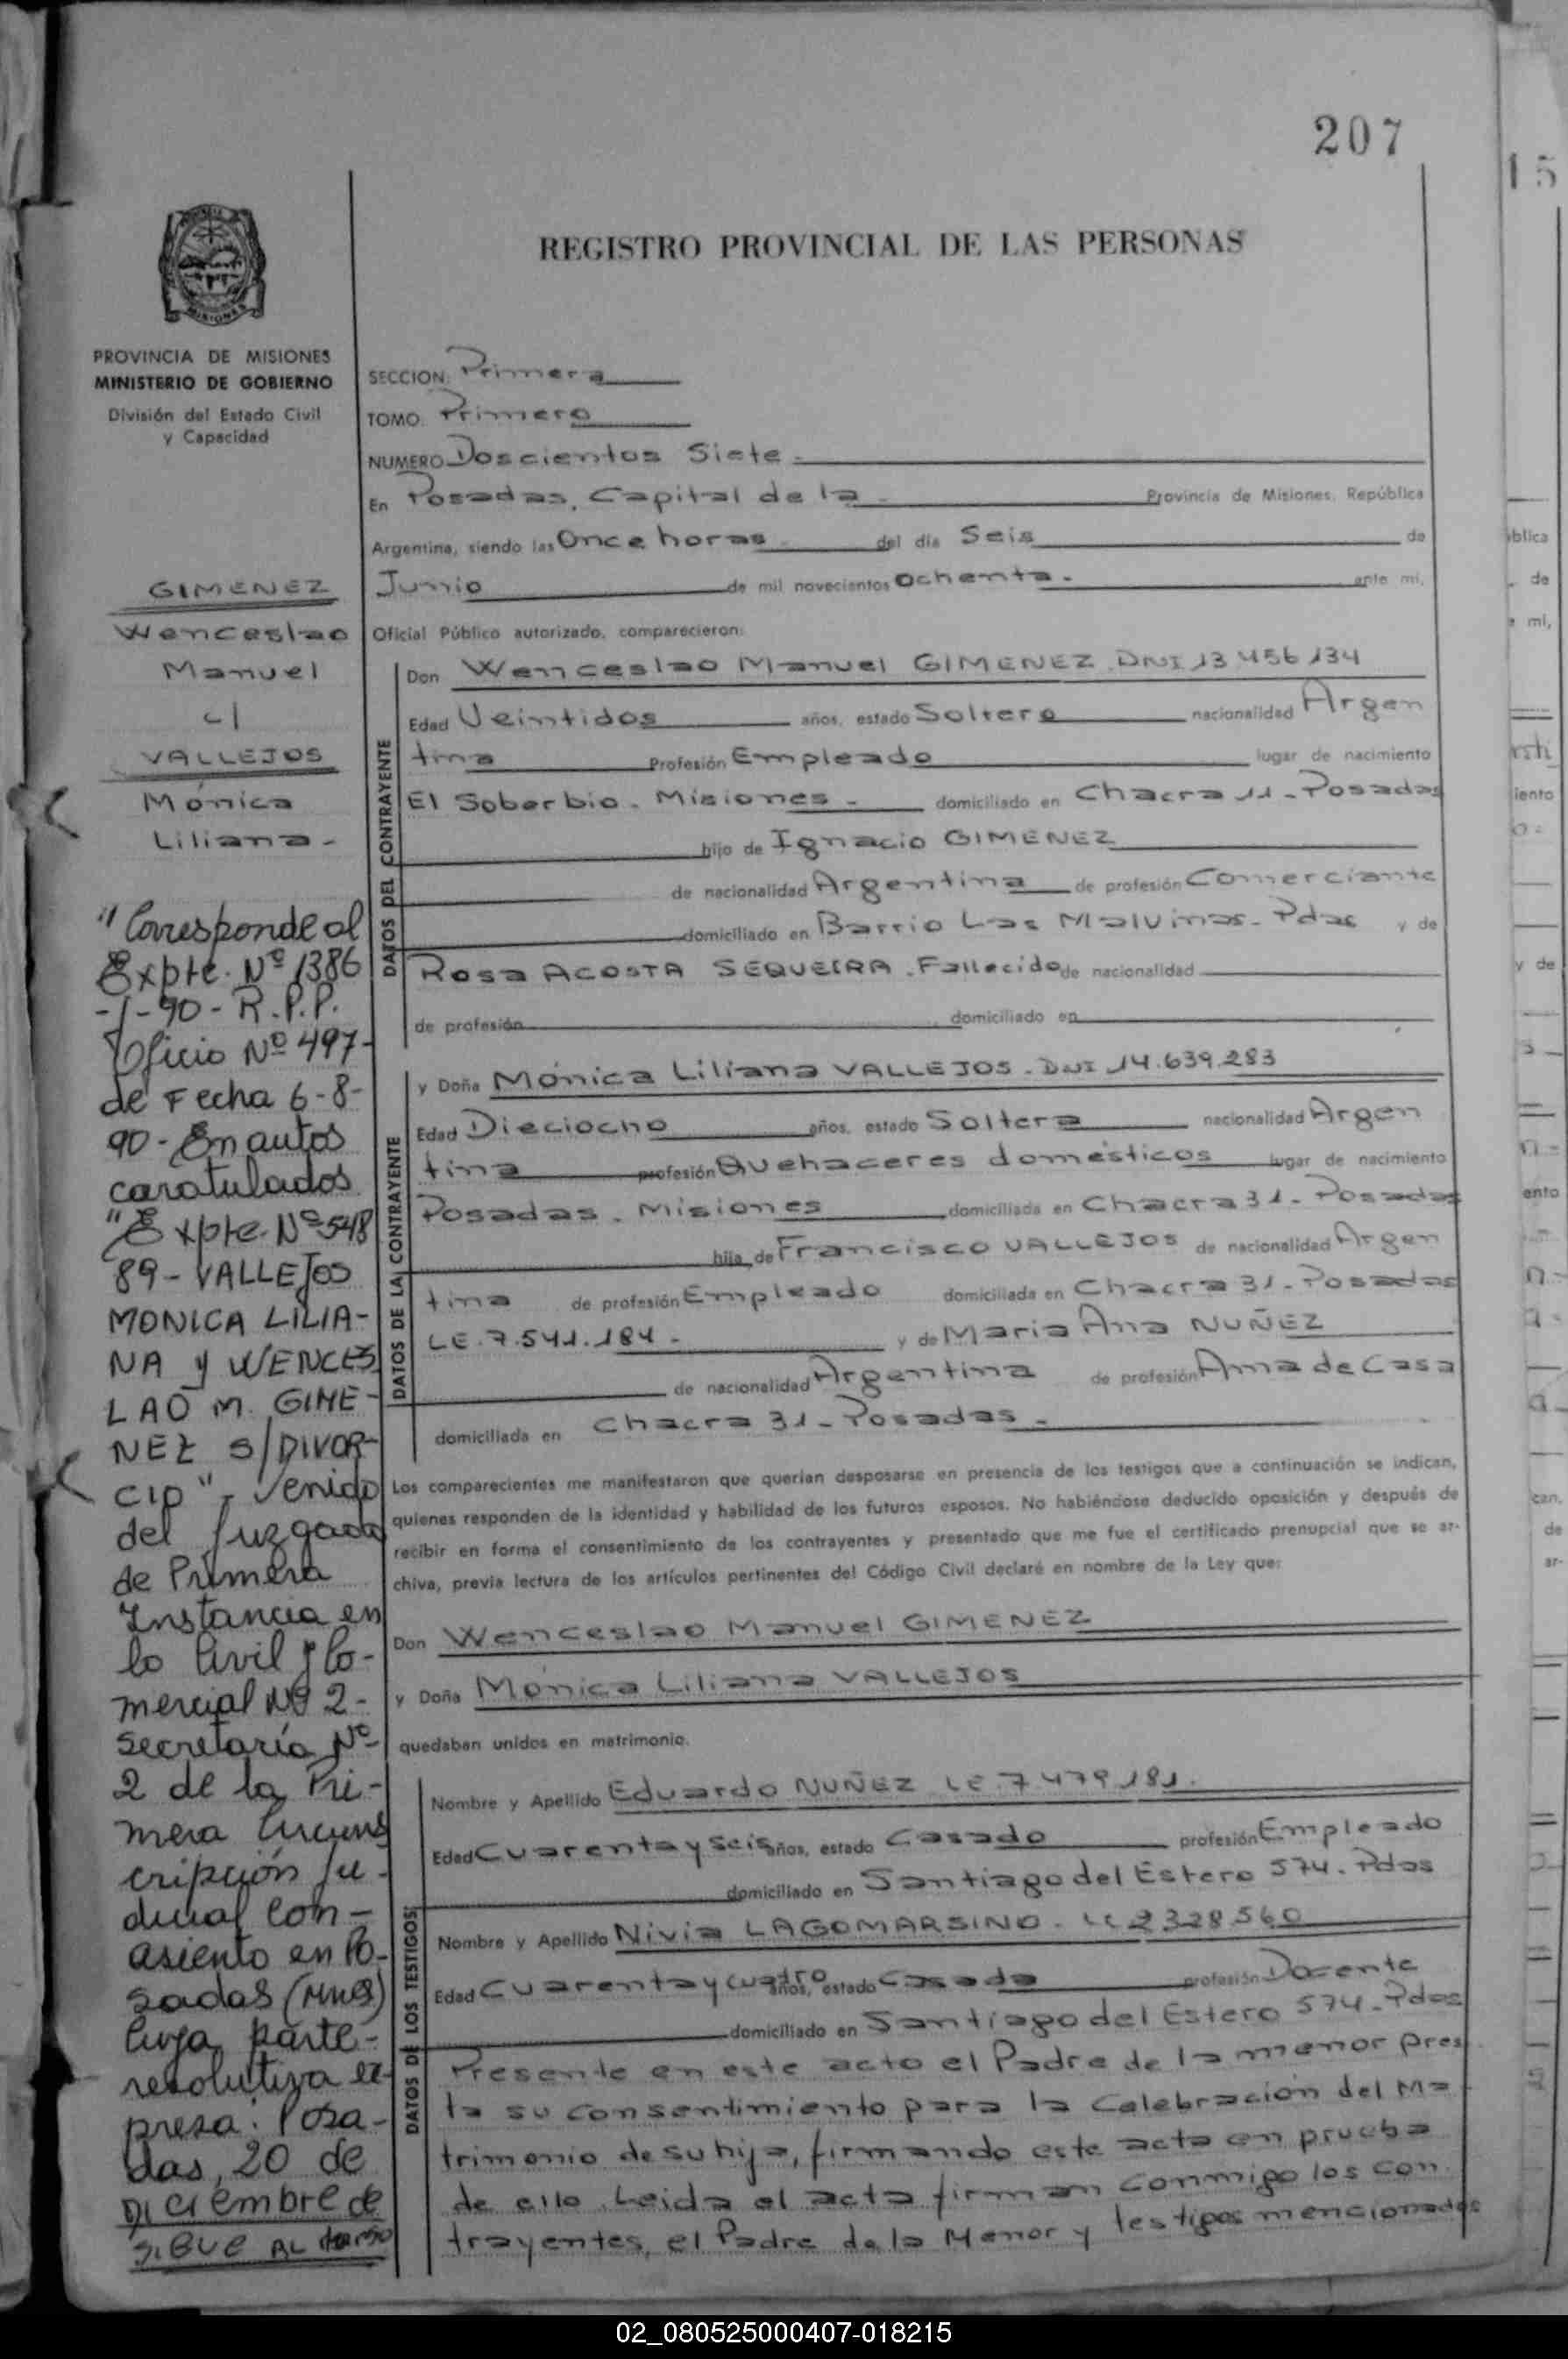 207
REGISTRO PROVINCIAL DE LAS PERSONAS
MISIONES
PROVINCIA DE MISIONES
MINISTERIO DE GOBIERNO
División del Estado Civil
y Capacidad
GIMENEZ
Wenceslao
Manuel
c/
VALLEJOS
Mónica
Liliana-
"Corresponde al
Expte. Nº 1386
-/-90- R.P.P.
Oficio Nº 497-
de Fecha 6-8-
90- En autos
caratulados
"Expte. Nº 548
89- VALLEJOS
MONICA LILIA-
NA y WENCES
LAO M. GIME-
NEZ S/DIVOR-
CIO"- venido
del Juzgado
de Primera
Instancia en
lo Civil y Co-
mercial Nº 2-
Secretaría Nº
2 de la Pri-
mera Circuns
cripción Ju-
dicial con-
asiento en Po-
sadas (Mnes)
Cuya parte-
resolutiva ex-
presa: Posa-
das, 20 de
Diciembre de
SIGUE AL dorso
SECCION: Primera
TOMO: Primero
NUMERO Doscientos Siete-
En Posadas, Capital de la - Provincia de Misiones, República
Argentina, siendo las Once horas - del día Seis de
Junio de mil novecientos Ochenta. ante mí,
Oficial Público autorizado, comparecieron:
DATOS DEL CONTRAYENTE
Don Wenceslao Manuel GIMENEZ. DNI 13 456 134
Edad Veintidos años, estado Soltero nacionalidad Argen
tina Profesión Empleado lugar de nacimiento
El Soberbio. Misiones - domiciliado en Chacra 11-Posadas
hijo de Ignacio GIMENEZ
de nacionalidad Argentina de profesión Comerciante
domiciliado en Barrio Las Malvinas-Pdas y de
Rosa ACOSTA SEQUEIRA. Fallecida de nacionalidad
de profesión domiciliado en
DATOS DE LA CONTRAYENTE
y Doña Mónica Liliana VALLEJOS. DNI 14.639.283
Edad Dieciocho años, estado Soltera nacionalidad Argen
tina profesión Quehaceres domésticos lugar de nacimiento
Posadas. Misiones domiciliada en Chacra 31-Posadas
hija de Francisco VALLEJOS de nacionalidad Argen
tina de profesión Empleado domiciliada en Chacra 31-Posadas
LE.7.541.184- y de Maria Ana NUÑEZ
de nacionalidad Argentina de profesión Ama de Casa
domiciliada en Chacra 31-Posadas-
Los comparecientes me manifestaron que querían desposarse en presencia de los testigos que a continuación se indican,
quienes responden de la identidad y habilidad de los futuros esposos. No habiéndose deducido oposición y después de
recibir en forma el consentimiento de los contrayentes y presentado que me fue el certificado prenupcial que se ar-
chiva, previa lectura de los artículos pertinentes del Código Civil declaré en nombre de la Ley que:
Don Wenceslao Manuel GIMENEZ
y Doña Mónica Liliana VALLEJOS
quedaban unidos en matrimonio.
DATOS DE LOS TESTIGOS
Nombre y Apellido Eduardo NUÑEZ LE.7.479.181.
Edad Cuarenta y Seis años, estado Casado profesión Empleado
domiciliado en Santiago del Estero 574. Pdas
Nombre y Apellido Nivia LAGOMARSINO. LC 2328560
Edad Cuarenta y cuatro años, estado Casada profesión Docente
domiciliado en Santiago del Estero 574-Pdas
Presente en este acto el Padre de la menor pres
ta su consentimiento para la Celebración del Ma
trimonio de su hija, firmando este acta en prueba
de ello. Leida el acta firman conmigo los con
trayentes, el Padre de la Menor y testigos mencionados
02_080525000407-018215